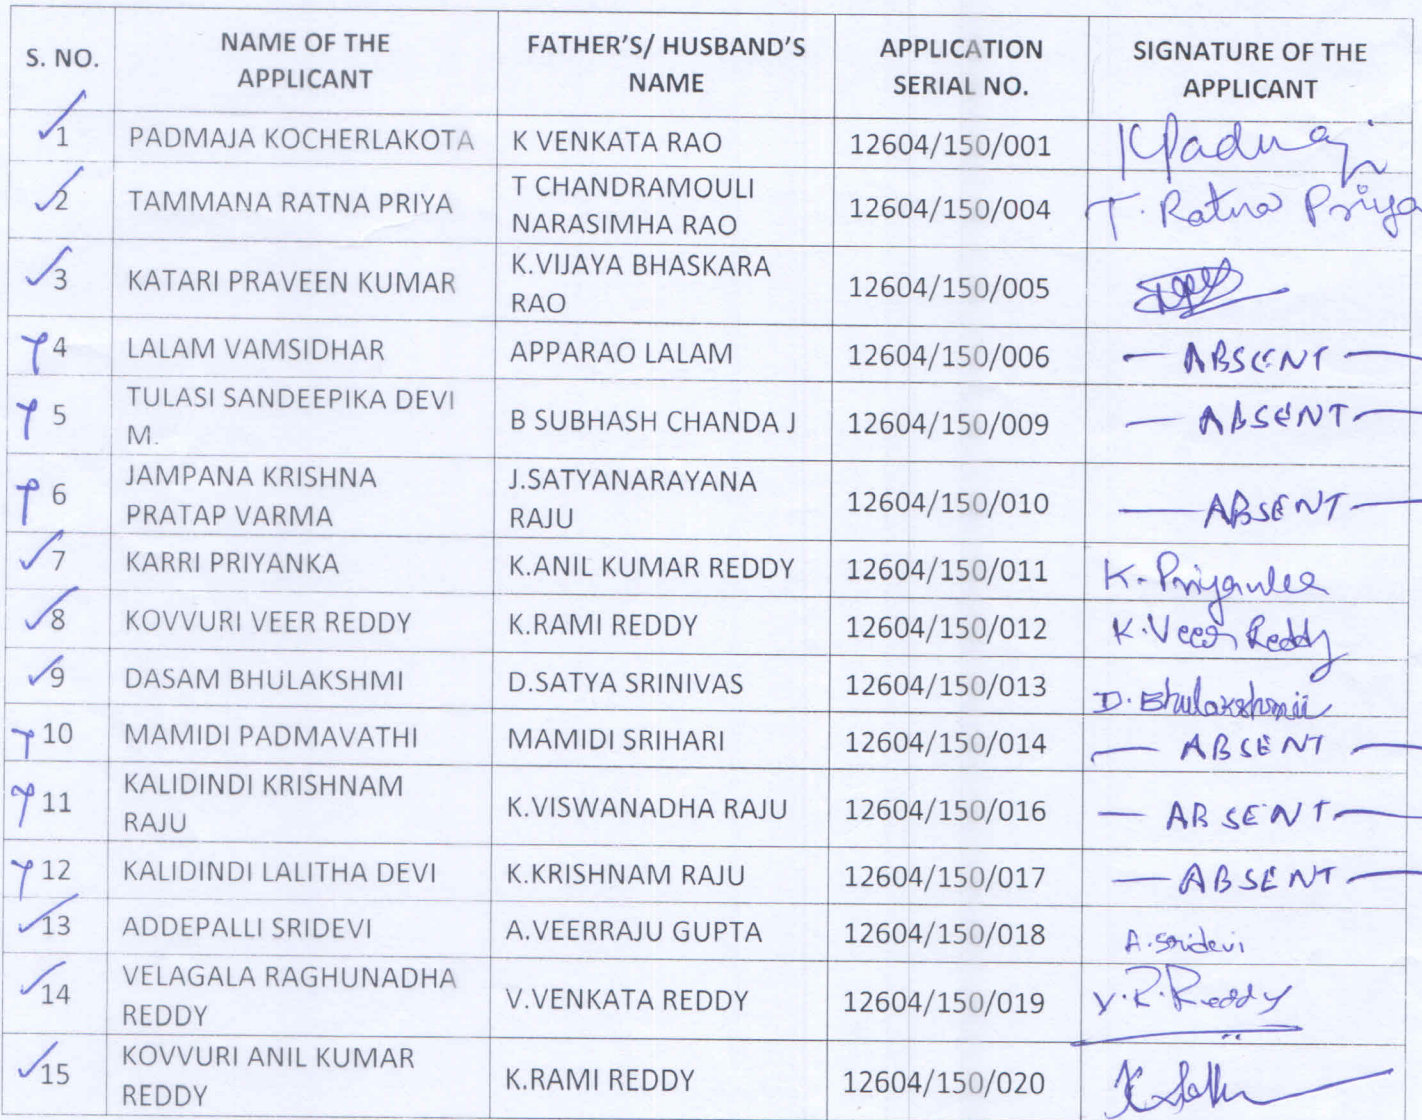 S. NO. NAME OF THE APPLICANT FATHER'S/ HUSBAND'S NAME APPLICATION SERIAL NO. SIGNATURE OF THE APPLICANT
1 PADMAJA KOCHERLAKOTA K VENKATA RAO 12604/150/001 K Padmaja
2 TAMMANA RATNA PRIYA T CHANDRAMOULI NARASIMHA RAO 12604/150/004 T. Ratna Priya
3 KATARI PRAVEEN KUMAR K.VIJAYA BHASKARA RAO 12604/150/005
4 LALAM VAMSIDHAR APPARAO LALAM 12604/150/006 — ABSENT —
5 TULASI SANDEEPIKA DEVI M. B SUBHASH CHANDA J 12604/150/009 — ABSENT —
6 JAMPANA KRISHNA PRATAP VARMA J.SATYANARAYANA RAJU 12604/150/010 — ABSENT —
7 KARRI PRIYANKA K.ANIL KUMAR REDDY 12604/150/011 K. Priyanka
8 KOVVURI VEER REDDY K.RAMI REDDY 12604/150/012 K. Veer Reddy
9 DASAM BHULAKSHMI D.SATYA SRINIVAS 12604/150/013 D. Bhulakshmi
10 MAMIDI PADMAVATHI MAMIDI SRIHARI 12604/150/014 — ABSENT —
11 KALIDINDI KRISHNAM RAJU K.VISWANADHA RAJU 12604/150/016 — ABSENT —
12 KALIDINDI LALITHA DEVI K.KRISHNAM RAJU 12604/150/017 — ABSENT —
13 ADDEPALLI SRIDEVI A.VEERRAJU GUPTA 12604/150/018 A. Sridevi
14 VELAGALA RAGHUNADHA REDDY V.VENKATA REDDY 12604/150/019 V. R. Reddy
15 KOVVURI ANIL KUMAR REDDY K.RAMI REDDY 12604/150/020